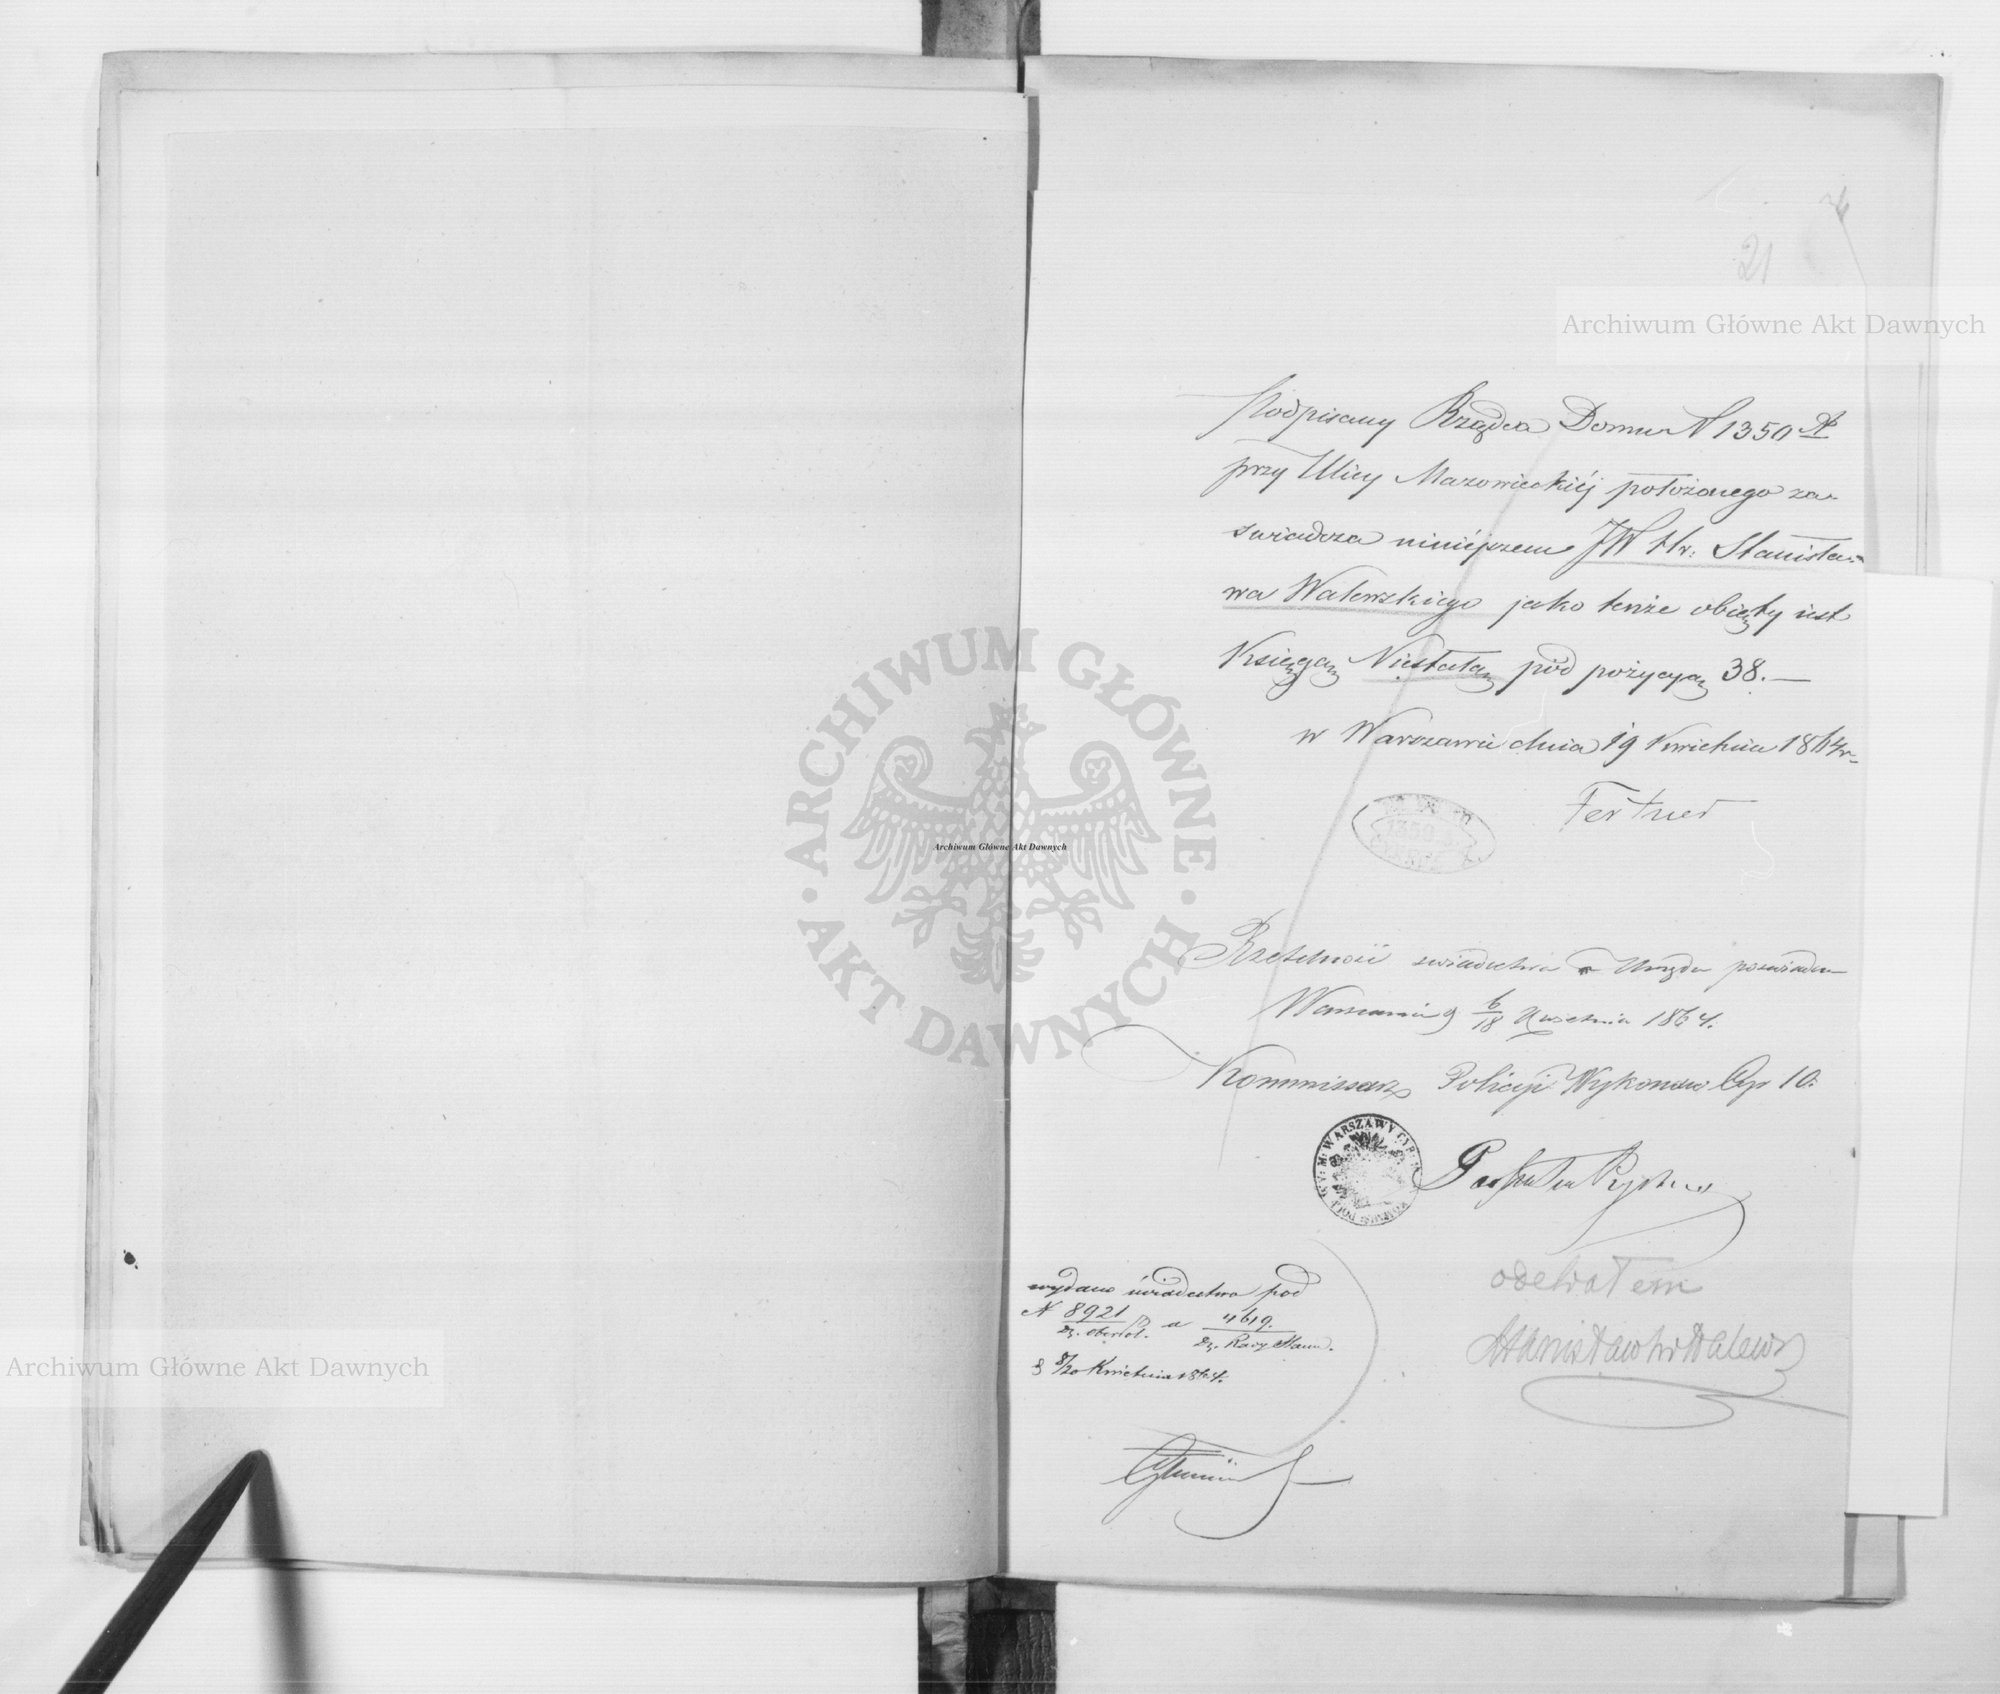 21
Archiwum Główne Akt Dawnych
Podpisany Rządca Domu N 1350 A
przy Ulicy Mazowieckiéj położonego za-
swiadcza niniéjszem JW Hr: Stanisła-
wa Walewskiego jako tenże obięty iest
Księgą Niestałą pod pozycyą 38. —
w Warszawie dnia 19 Kwietnia 1864 r
Fertner
1350
Rzetelność swiadectwa Urzędu poswiadcza
Warszawa d 6/18 Kwietnia 1864.
Kommissarz Policyi Wykonaw Cyr 10.
WARSZAWY CYR:
odebrałem
Stanisław hr Walews
wydano świadectwo pod
N 8921 a 4619.
d 8/20 Kwietnia 1864.
ARCHIWUM GŁÓWNE
AKT DAWNYCH
Archiwum Główne Akt Dawnych
Archiwum Główne Akt Dawnych